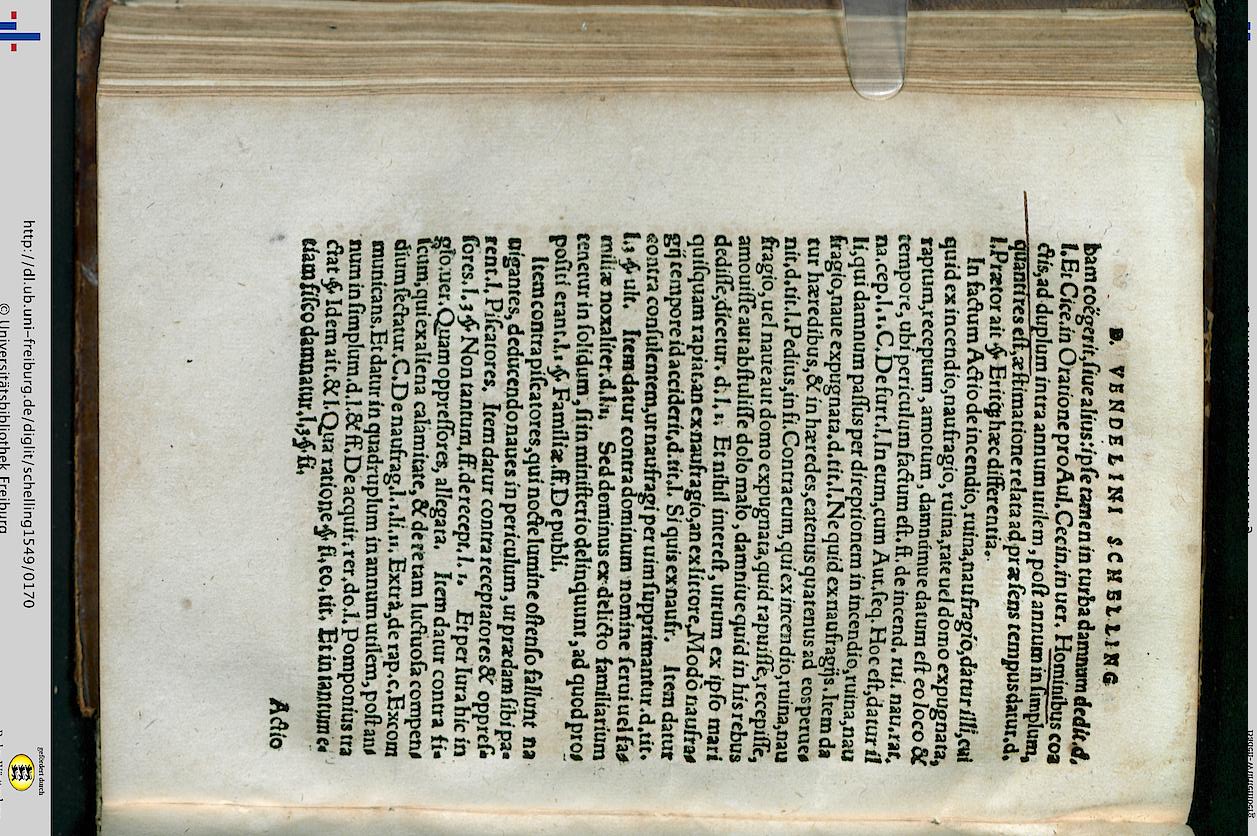 D. VENDELINI SCHELLING
bam coëgerit, siue alius: ipse tamen in turba damnum dedit. d.
l. Et Cice. in Oratione pro Aul. Cecin. in uer. Hominibus coa
ctis, ad duplum intra annum utilem, post annum in simplum,
quanti res est, æstimatione relata ad præsens tempus datur. d.
l. Prætor ait. §. Eritq́; hæc differentia.
In factum Actio de incendio, ruina, naufragio, datur illi, cui
quid ex incendio, naufragio, ruina, rate uel domo expugnata,
raptum, receptum, amotum, damniue datum est eo loco &
tempore, ubi periculum factum est. ff. de incend. rui. nau. rat.
na. cep. l. 1. C. De fur. l. In eum, cum Aut. seq. Hoc est, datur il
li, qui damnum passus per direptionem in incendio, ruina, nau
fragio, naue expugnata. d. tit. l. Ne quid ex naufragijs. Item da
tur hæredibus, & in hæredes, eatenus quatenus ad eos perue⸗
nit, d. tit. l. Pedius, in fi. Contra eum, qui ex incendio, ruina, nau
fragio, uel naue aut domo expugnata, quid rapuisse, recepisse,
amouisse aut abstulisse dolo malo, damniue quid in his rebus
dedisse, dicetur. d. l. 1. Et nihil interest, utrum ex ipso mari
quisquam rapiat, an ex naufragio, an ex littore, Modò naufra⸗
gij tempore id acciderit, d. tit. l. Si quis ex naufr. Item datur
contra consulentem, ut naufragi per uim supprimantur. d. tit.
l. 3. §. ult. Item datur contra dominum nomine serui uel fa⸗
miliæ noxaliter. d. l. 1. Sed dominus ex delicto familiarium
tenetur in solidum, si in ministerio delinquunt, ad quod pro⸗
positi erant. l. 1. §. Familiæ. ff. De publi.
Item contra piscatores, qui nocte lumine ostenso fallunt na
uigantes, deducendo naues in periculum, ut prædam sibi pa⸗
rent. l. Piscatores. Item datur contra receptatores & oppres⸗
sores. l. 3. §. Non tantum. ff. de recept. l. 1. Et per Iura hîc in
glo. uer. Quam oppressores, allegata. Item datur contra fi⸗
scum, qui ex aliena calamitate, & de re tam luctuosa compen⸗
dium sectatur. C. De naufrag. l. 1. l. 11. Extrà, de rap. c. Excom
municans. Et datur in quadruplum in annum utilem, post an⸗
num in simplum. d. l. & ff. De acquir. rer. do. l. Pomponius tra
ctat §. Idem ait. & l. Qua ratione §. fi. eo. tit. Et in tantum e⸗
tiam fisco damnatur. l. 3. §. fi.
Actio
http://dl.ub.uni-freiburg.de/diglit/schelling1549/0170
© Universitätsbibliothek Freiburg
gefördert durch